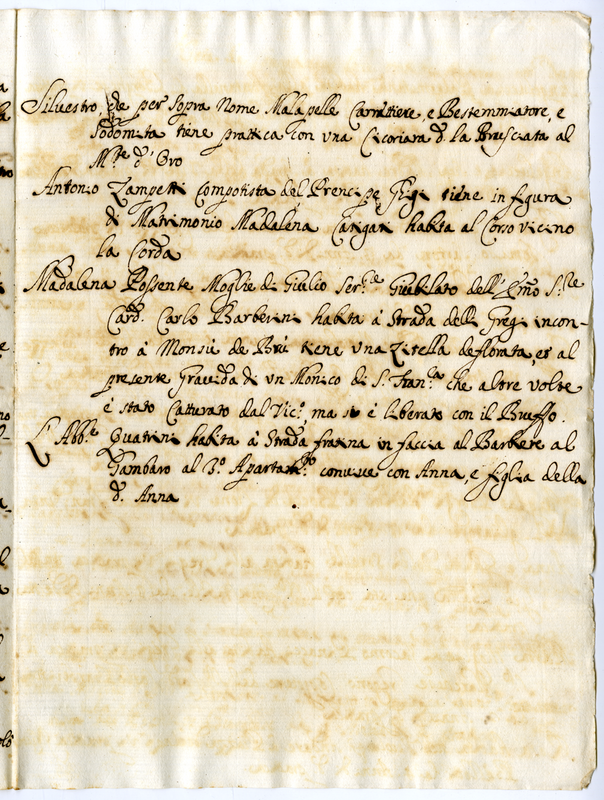 Siluestro che per sopra Nome Malapelle Carrettiere, e Bestemmiatore, e
Sodomita tiene prattica con vna Cicoriara d. la Brusciata al
M.te d' Oro
Antonio Zampetti Compotista del Prencipe Ghigi tiene in figura
di Matrimonio Madalena habita al Corso vicino
la Corda
Madalena Possente Moglie di Giulio Ser.re Giubilato dell' Em̃o S.re
Card. Carlo Barberini habita á Strada delli Gregi incon-
tro á Monsù de Brú tiene una Zitella deflorata, et al
presente Grauida di vn Monico di S. Fran.ca che altre volte
é stato Catturato dal Vic.o, ma si é liberato con il Bruffo.
L' Abb.e Quatrini habita á Strada fratina in faccia al Barbiere al
Gambaro al 3.o Apartam.to conuiue con Anna, e figlia della
d. Anna